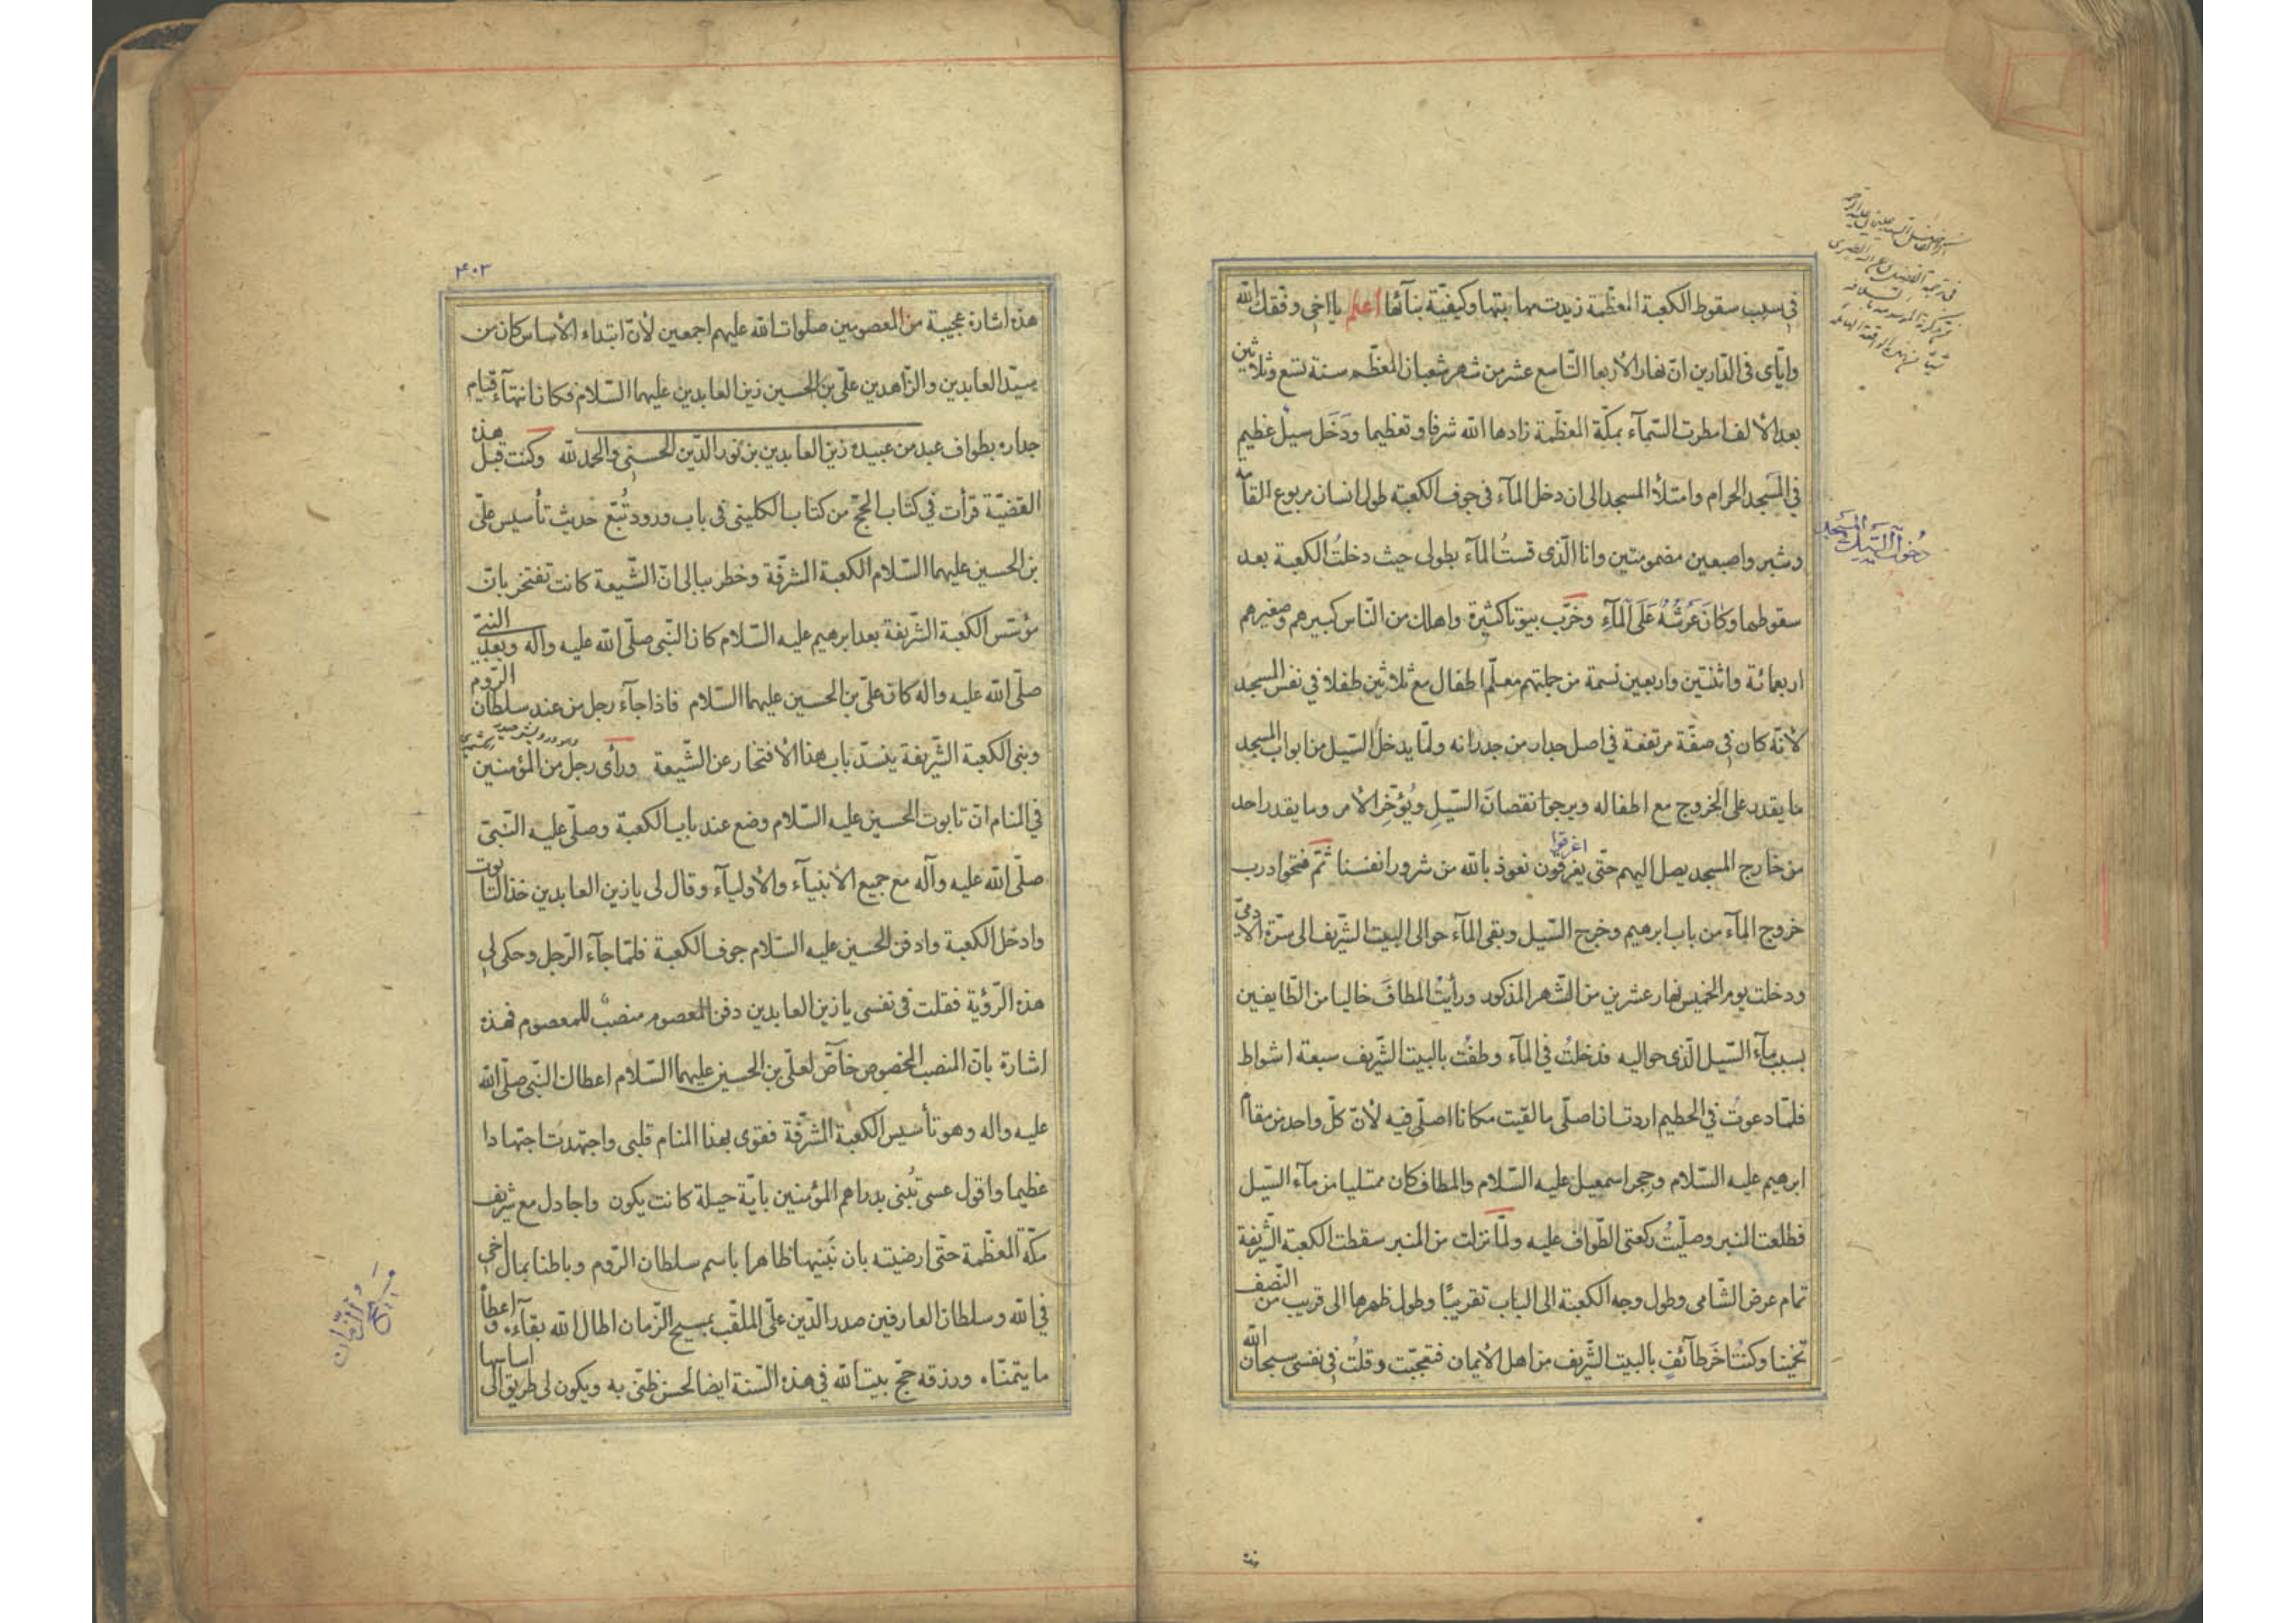 في سبب سقوط الكعبة المعظّمة زيدت مهابتها وكيفيّة بنائها اعلم يا اخي وفّقك الله
وايّاى في الدّارين انّ نهار الأربعا التّاسع عشر من شهر شعبان المعظّم سنة تسع وثلاثين
بعد الألف امطرت السّمآء بمكّة المعظّمة زادها الله شرفا وتعظيما ودَخَل سيلٌ عظيم
في المسجد الحرام وامتلأ المسجد الى ان دخل المآء في جوف الكعبة طول انسان مربوع القامة
وشبر واصبعين مضمومتين وانا الّذى قستُ المآء بطولى حيث دخلتُ الكعبة بعد
سقوطها وكَانَ عَرْشُهُ عَلَى الْمآءِ وخرّب بيوتا كثيرة واهلك من النّاس كبيرهم وصغيرهم
اربعمائة واثنتين واربعين نسمة من جملتهم معلّم اطفال مع ثلاثين طفلا في نفس المسجد
لأنّه كان في صفّة مرتفعة في اصل جدار من جدرانه ولمّا يدخل السّيل من ابواب المسجد
ما يقدر على الخروج مع اطفاله ويرجوا نقصانَ السّيلِ ويُؤخّر الأمر وما يقدر احد
من خارج المسجد يصل اليهم حتّى يغرقون نعوذ بالله من شرور انفسنا ثمّ فتحوا درب
اغرقوا
خروج المآء من باب ابرهيم وخرج السّيل وبقى المآء حوالى البيت الشّريف الى سرّة الآدمىّ
ودخلت يوم الخميس نهار عشرين من الشّهر المذكور ورأيتُ المطافَ خاليا من الطّايفين
بسبب مآء السّيل الّذى حواليه فدخلتُ في المآء وطفْتُ بالبيت الشّريف سبعة اشواط
فلمّا دعوت في الحطيم اردت ان اصلّى ما لقيت مكانا اصلّى فيه لأنّ كلّ واحد من مقام
ابرهيم عليه السّلام وحِجر اسمعيل عليه السّلام والمطاف كان ممتليا من مآء السّيل
فطلعت المنبر وصلّيتُ ركعتى الطّواف عليه ولمّا نزلت من المنبر سقطت الكعبة الشّريفة
تمام عرض الشّامى وطول وجه الكعبة الى الباب تقريبًا وطول ظهرها الى قريب من النّصف
تخمينا وكنتُ اخَر طآئفٍ بالبيت الشّريف من اهل الأيمان فتعجّبت وقلتُ في نفسى سبحان الله
دُخول السّيل المسجد
٤٠٢
هذه اشارة عجيبة من المعصومين صلوات الله عليهم اجمعين لأنّ ابتداء الأساس كان من
سيّد العابدين والزّاهدين علىّ بن الحسين زين العابدين عليهما السّلام فكان انتهآء قيام
جداره بطواف عبد من عبيده زين العابدين بن نور الدّين الحسينى والحمد لله وكنت قبل هذه
القضيّة قرأت في كتاب الحجّ من كتاب الكلينى في باب ورود تُبّع حديث تأسيس علىّ
بن الحسين عليهما السّلام الكعبة المشرّفة وخطر ببالى انّ الشّيعة كانت تفتخر بانّ
مؤسّس الكعبة الشّريفة بعد ابرهيم عليه السّلام كان النّبى صلّى الله عليه وآله وبعد النّبىّ
صلّى الله عليه وآله كان علىّ بن الحسين عليهما السّلام فاذا جآء رجل من عند سلطان الرّوم
وبنى الكعبة الشّريفة ينسدّ باب هذا الأفتخار عن الشّيعة ورأى رجل من المؤمنين
في المنام انّ تابوت الحسين عليه السّلام وضع عند باب الكعبة وصلّى عليه النّبىّ
صلّى الله عليه وآله مع جميع الأنبيآء والأوليآء وقال لى يا زين العابدين خذ التّابوت
وادخل الكعبة وادفن الحسين عليه السّلام جوف الكعبة فلمّا جآء الرّجل وحكى لى
هذه الرّؤية فقلت في نفسى يا زين العابدين دفن المعصوم منصبٌ للمعصوم فهذه
اشارة بانّ المنصب المخصوص خآصّ لعلىّ بن الحسين عليهما السّلام اعطاك النّبى صلّى الله
عليه وآله وهو تأسيس الكعبة المشرّفة فقوى بهذا المنام قلبى واجتهدت اجتهادا
عظيما واقول عسى تُبنى بدراهم المؤمنين بايّة حيلة كانت يكون واجادل مع شريف
مكّة المعظّمة حتّى ارضيته بان نَبنيها ظاهرا باسم سلطان الرّوم وباطنا بمال اخى
في الله وسلطان العارفين صدر الدّين علىّ الملقّب بمسيح الزّمان اطال الله بقآءه واعطاه
ما يتمنّاه ورزقه حجّ بيت الله في هذه السّنة ايضا لحسن ظنّى به ويكون لى طريق الى اساسها
مسيح الزّمان